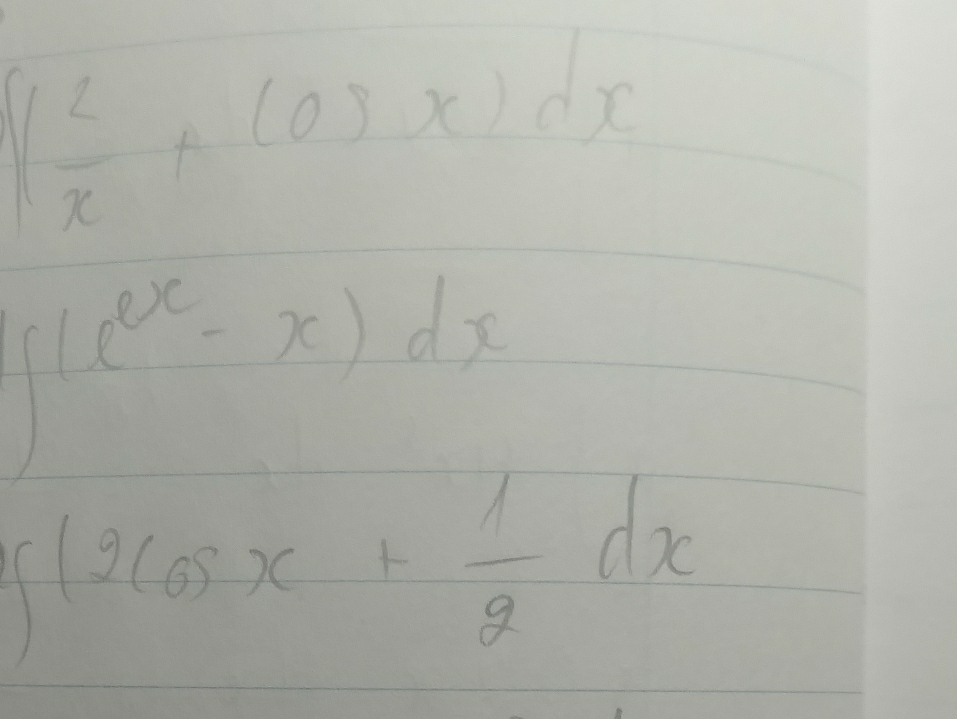 ∫(2/x + cos x) dx
∫(e^{ex} - x) dx
∫(2cos x + 1/2 dx